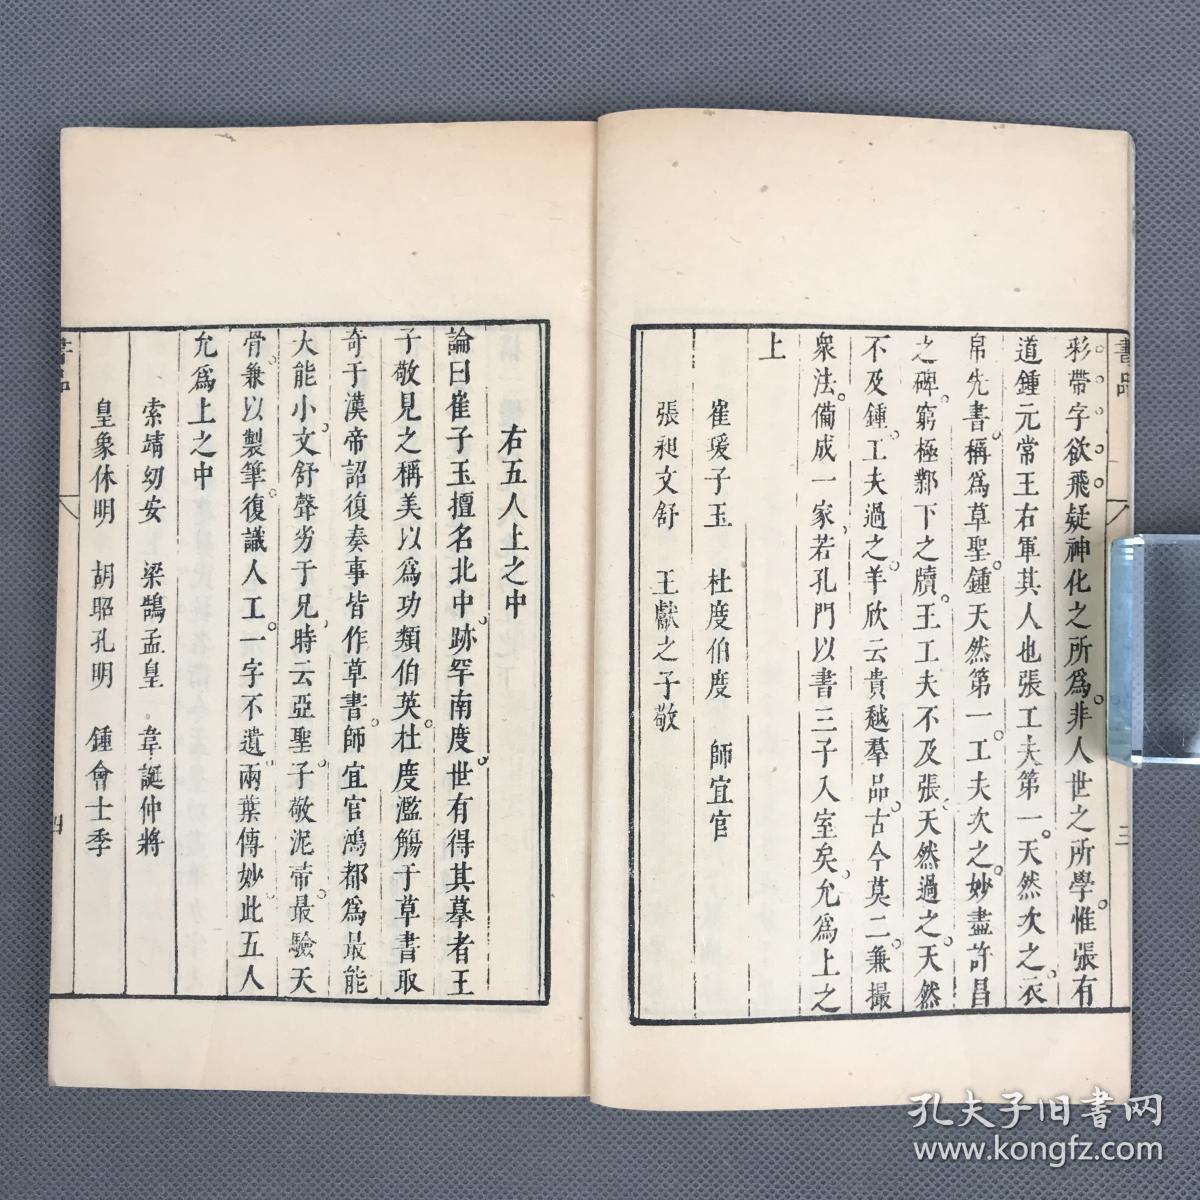 書品
三
彩帶字欲飛疑神化之所爲非人世之所學惟張有
道鍾元常王右軍其人也張工夫第一天然次之衣
帛先書稱爲草聖鍾天然第一工夫次之妙盡許昌
之碑窮極鄴下之牘王工夫不及張天然過之天然
不及鍾工夫過之羊欣云貴越羣品古今莫二兼撮
衆法備成一家若孔門以書三子入室矣允爲上之
上
崔瑗子玉　杜度伯度　師宜官
張昶文舒　王獻之子敬
右五人上之中
論曰崔子玉擅名北中跡罕南度世有得其摹者王
子敬見之稱美以爲功類伯英杜度濫觴于草書取
奇于漢帝詔復奏事皆作草書師宜官鴻都爲最能
大能小文舒聲劣于兄時云亞聖子敬泥帚最驗天
骨兼以製筆復識人工一字不遺兩葉傳妙此五人
允爲上之中
索靖幼安　梁鵠孟皇　韋誕仲將
皇象休明　胡昭孔明　鍾會士季
書品
四
孔夫子旧书网
www.kongfz.com